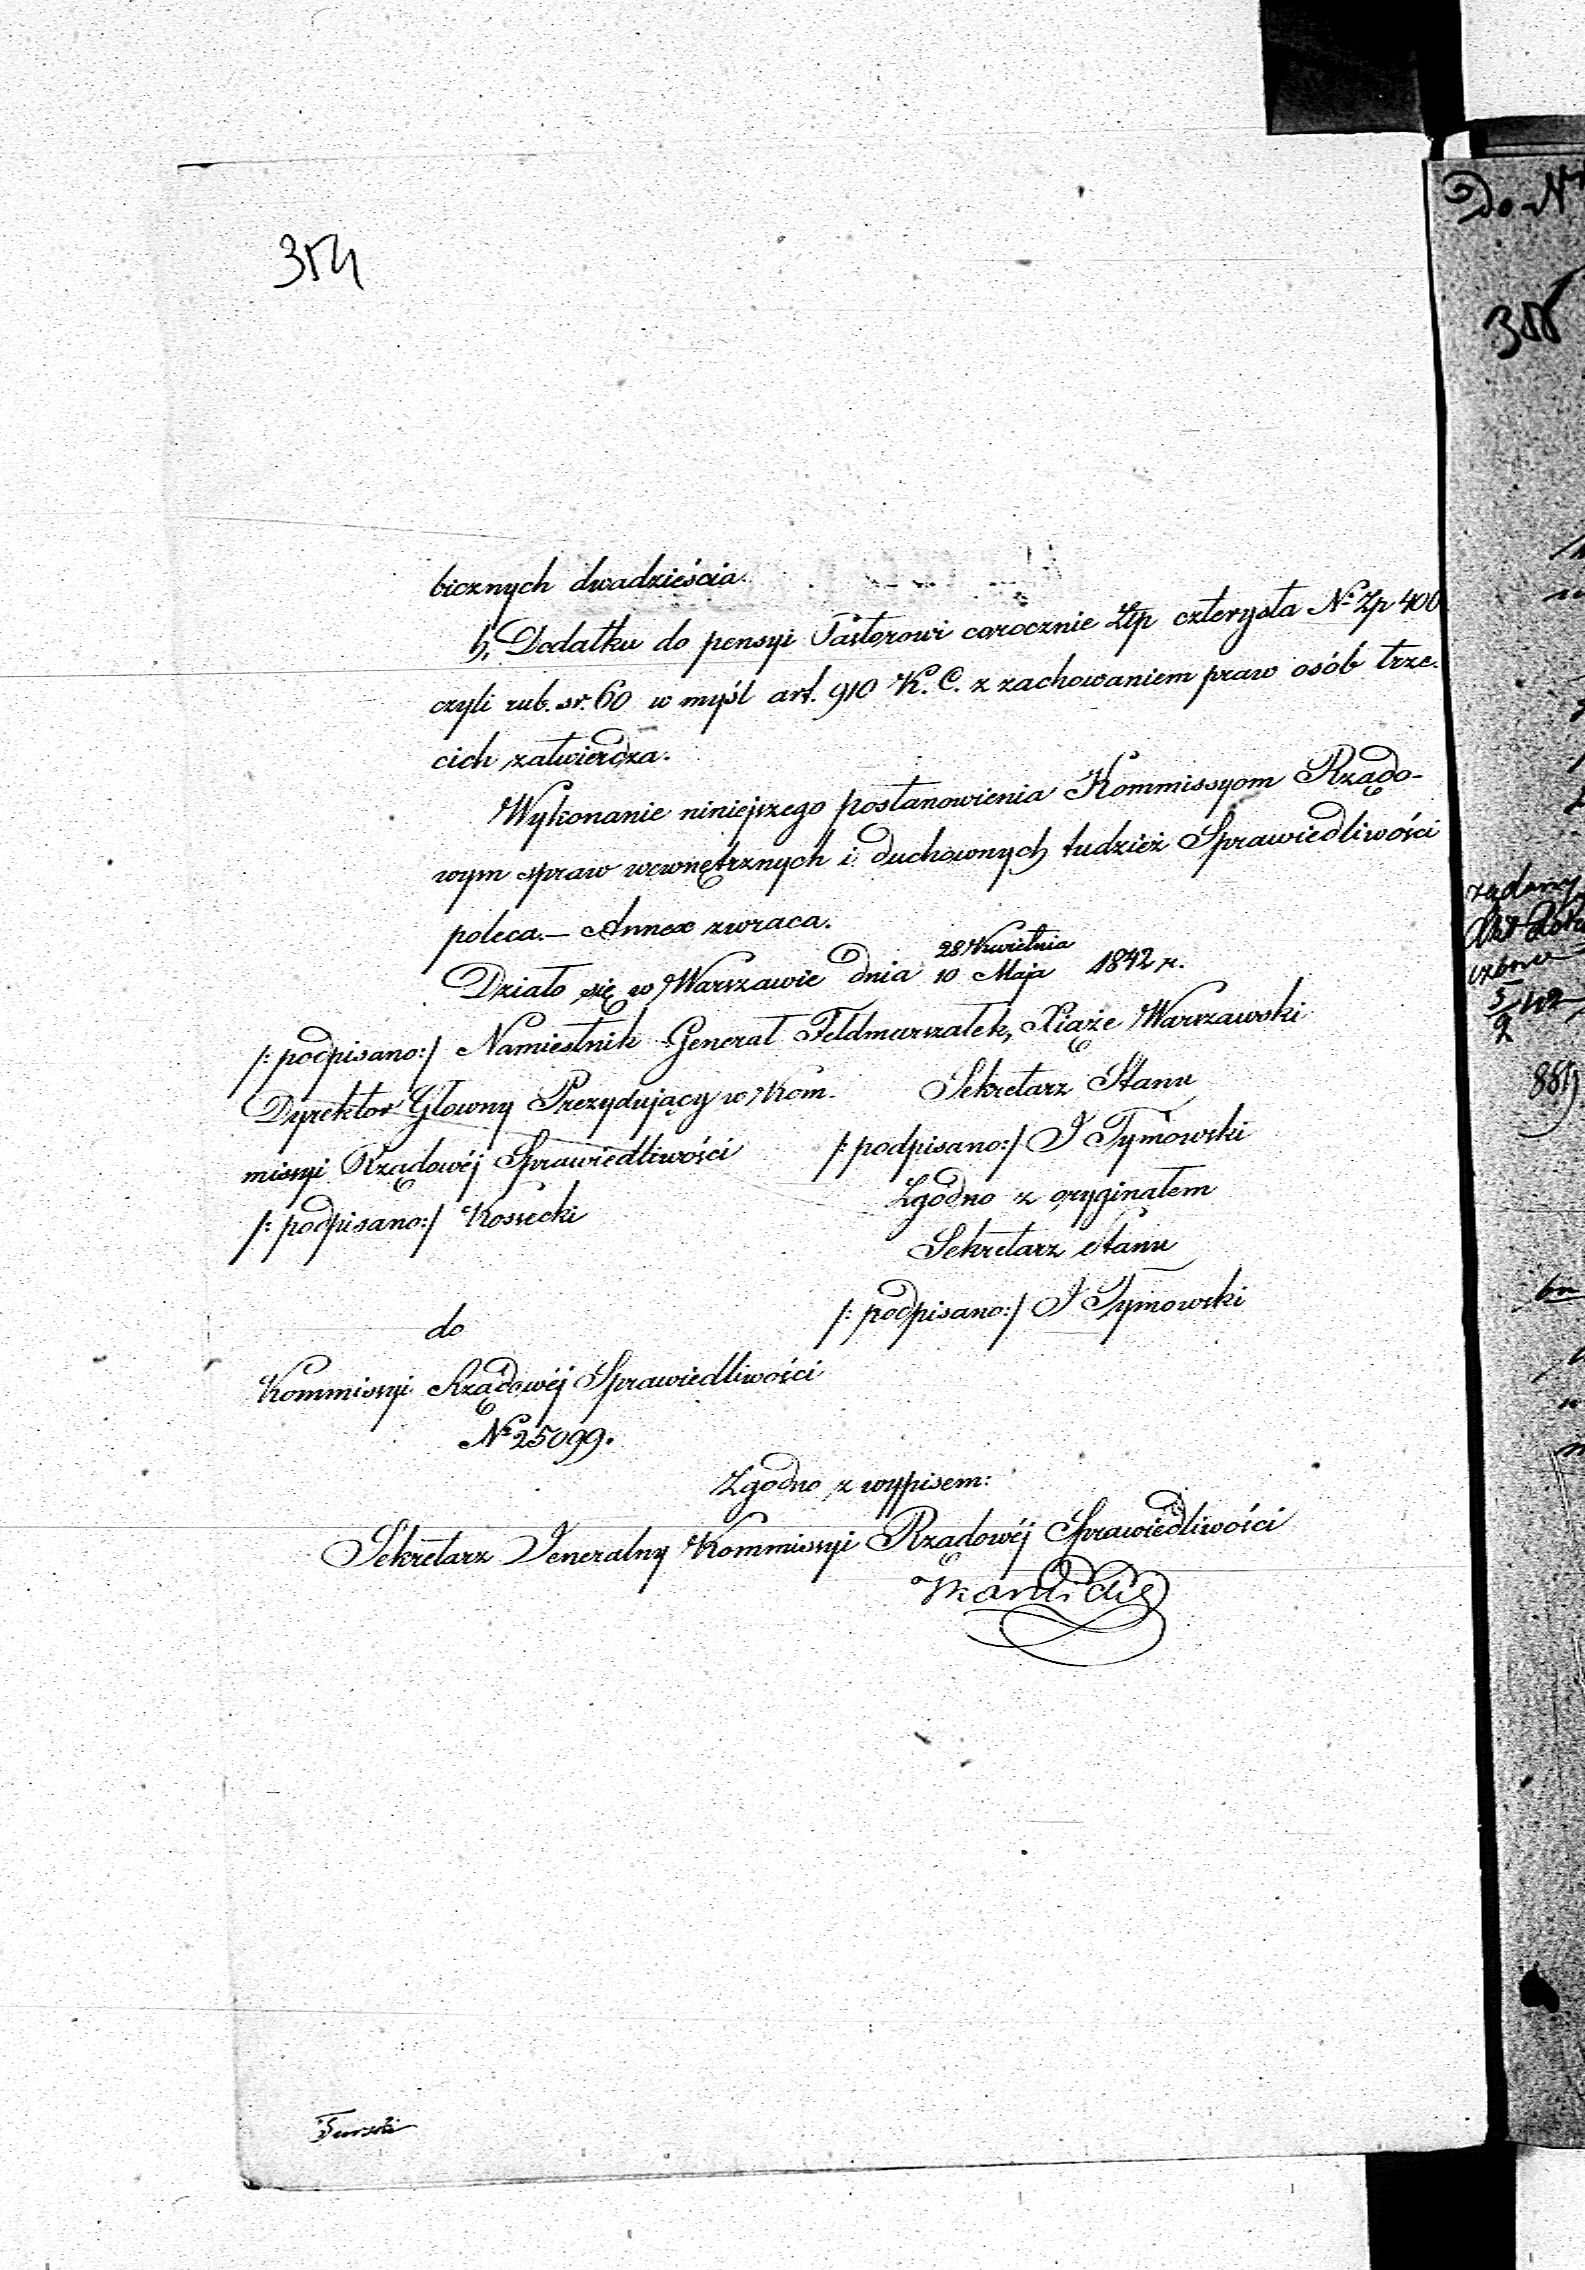 354
bicznych dwadzieścia.
b, Dodatku do pensyi Pastorowi corocznie Złp czterysta № Zp 400
czyli rub. sr. 60 w myśl art. 910 K. C. z zachowaniem praw osób trze-
cich zatwierdza.
Wykonanie niniejszego postanowienia Kommissyom Rządo-
wym spraw wewnętrznych i duchownych tudzież Sprawiedliwości
poleca. — Annex zwraca.
Działo się w Warszawie dnia 28 Kwietnia / 10 Maja 1842 r.
/: podpisano :/ Namiestnik Generał Feldmarszałek, Xiąże Warszawski
Dyrektor Główny Prezydujący w Kom-
missyi Rządowéj Sprawiedliwości
/: podpisano :/ Kossecki
Sekretarz Stanu
/: podpisano :/ J Tymowski
Zgodno z oryginałem
Sekretarz Stanu
/: podpisano :/ J Tymowski
do
Kommissyi Rządowéj Sprawiedliwości
№ 25099.
Zgodno z wypisem:
Sekretarz Jeneralny Kommissyi Rządowéj Sprawiedliwości
Do N